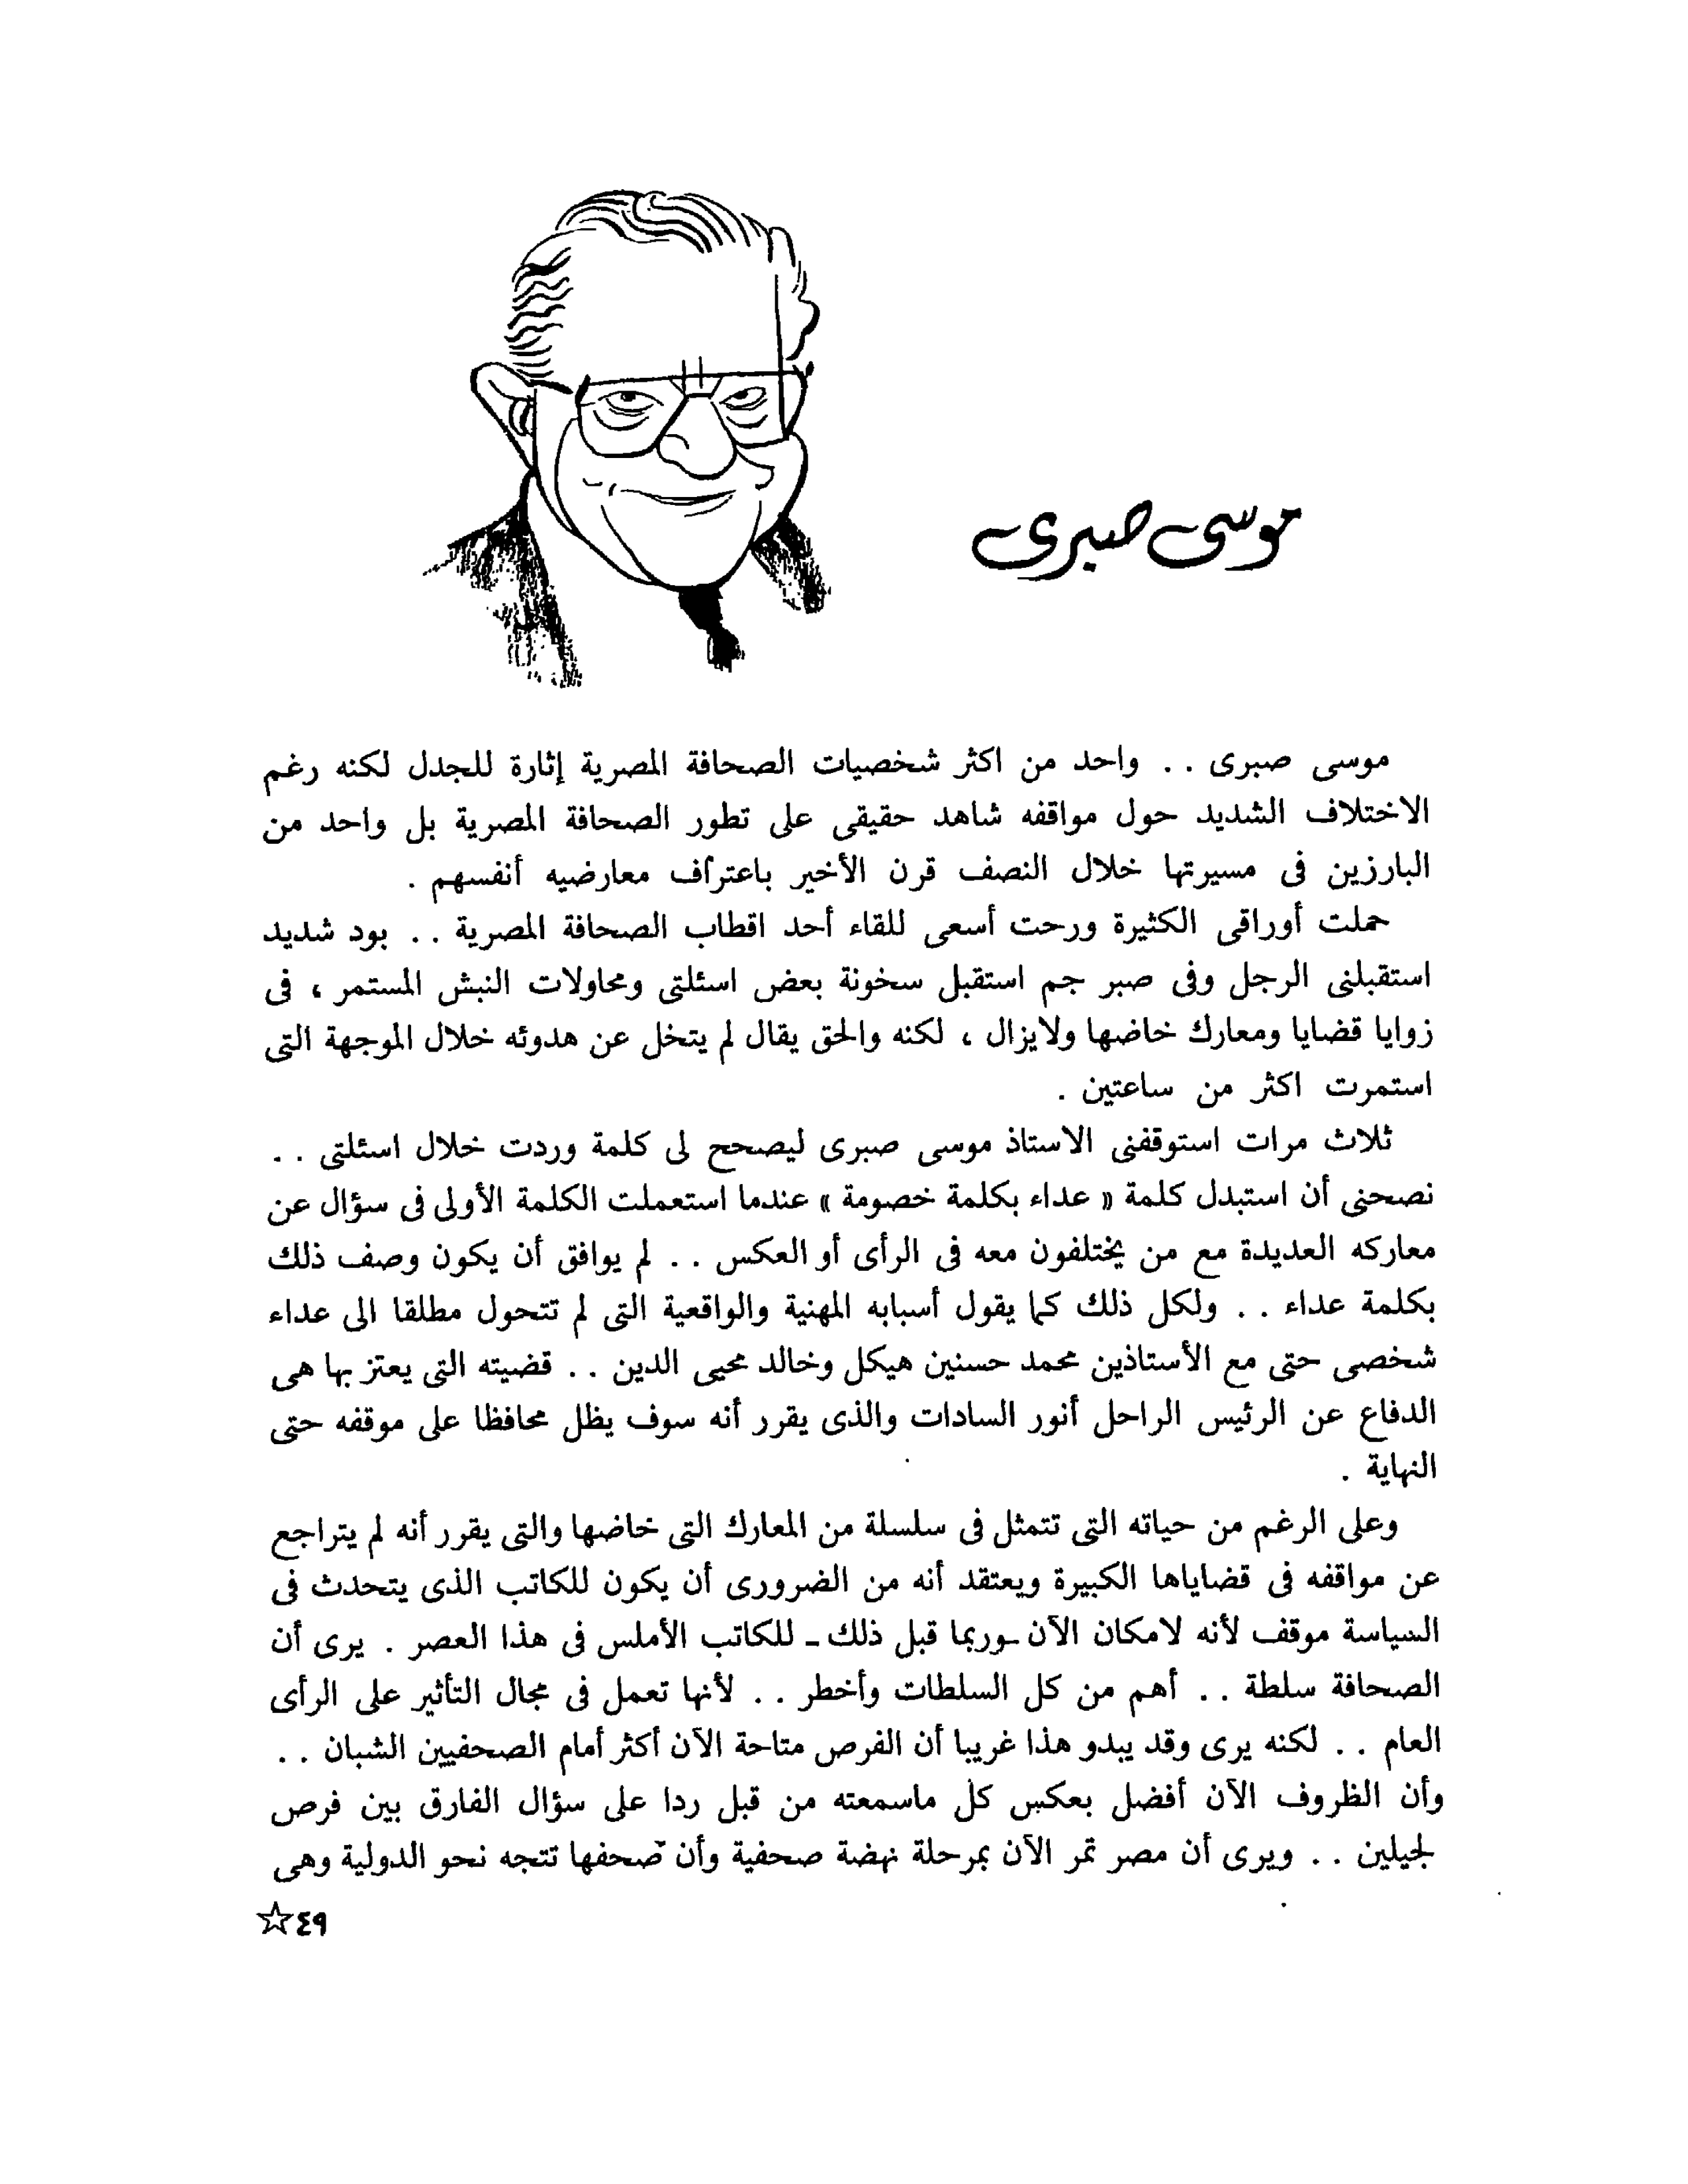 موسى صبرى
موسى صبرى . . واحد من اكثر شخصيات الصحافة المصرية إثارة للجدل لكنه رغم
الاختلاف الشديد حول مواقفه شاهد حقيقى على تطور الصحافة المصرية بل واحد من
البارزين فى مسيرتها خلال النصف قرن الأخير باعتراف معارضيه أنفسهم .
حملت أوراقى الكثيرة ورحت أسعى للقاء أحد اقطاب الصحافة المصرية . . بود شديد
استقبلنى الرجل وفى صبر جم استقبل سخونة بعض اسئلتى ومحاولات النبش المستمر ، فى
زوايا قضايا ومعارك خاضها ولايزال ، لكنه والحق يقال لم يتخل عن هدوئه خلال الموجهة التى
استمرت اكثر من ساعتين .
ثلاث مرات استوقفنى الاستاذ موسى صبرى ليصحح لى كلمة وردت خلال اسئلتى . .
نصحنى أن استبدل كلمة « عداء بكلمة خصومة » عندما استعملت الكلمة الأولى فى سؤال عن
معاركه العديدة مع من يختلفون معه فى الرأى أو العكس . . لم يوافق أن يكون وصف ذلك
بكلمة عداء . . ولكل ذلك كما يقول أسبابه المهنية والواقعية التى لم تتحول مطلقا الى عداء
شخصى حتى مع الأستاذين محمد حسنين هيكل وخالد محيى الدين . . قضيته التى يعتز بها هى
الدفاع عن الرئيس الراحل أنور السادات والذى يقرر أنه سوف يظل محافظا على موقفه حتى
النهاية .
وعلى الرغم من حياته التى تتمثل فى سلسلة من المعارك التى خاضها والتى يقرر أنه لم يتراجع
عن مواقفه فى قضاياها الكبيرة ويعتقد أنه من الضرورى أن يكون للكاتب الذى يتحدث فى
السياسة موقف لأنه لامكان الآن ـوربما قبل ذلك ـ للكاتب الأملس فى هذا العصر . يرى أن
الصحافة سلطة . . أهم من كل السلطات وأخطر . . لأنها تعمل فى مجال التأثير على الرأى
العام . . لكنه يرى وقد يبدو هذا غريبا أن الفرص متاحة الآن أكثر أمام الصحفيين الشبان . .
وأن الظروف الآن أفضل بعكس كل ماسمعته من قبل ردا على سؤال الفارق بين فرص
لجيلين . . ويرى أن مصر تمر الآن بمرحلة نهضة صحفية وأن صحفها تتجه نحو الدولية وهى
٤٩☆